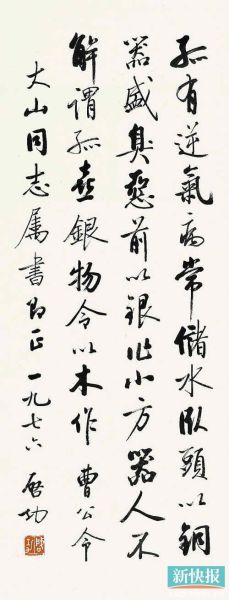 孤有逆氣病常儲水臥頭以銅
器盛臭惡前以銀作小方器人不
解謂孤喜銀物令以木作 曹公令
大山同志屬書即正一九七六 启功
新快报